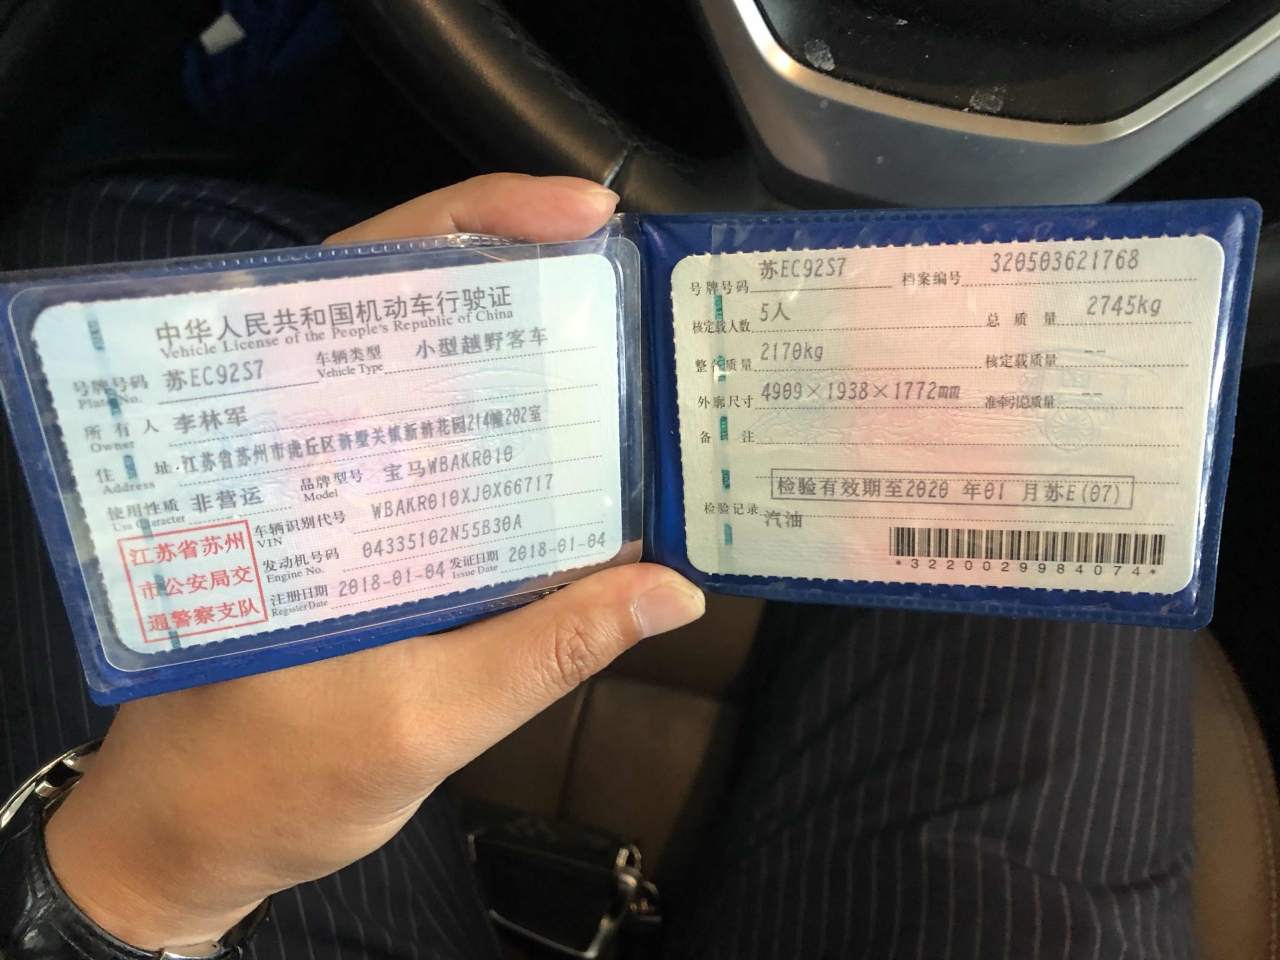 中华人民共和国机动车行驶证
Vehicle License of the People's Republic of China
号牌号码 苏EC92S7 车辆类型 小型越野客车
Plate No. Vehicle Type
所有人 李林军
Owner
住址 江苏省苏州市虎丘区浒墅关镇新浒花园214幢202室
Address
使用性质 非营运 品牌型号 宝马WBAKR010
Use Character Model
江苏省苏州
市公安局交
通警察支队
车辆识别代号 WBAKR010XJ0X66717
VIN
发动机号码 04335102N55B30A
Engine No.
注册日期 2018-01-04 发证日期 2018-01-04
Register Date Issue Date
号牌号码 苏EC92S7 档案编号 320503621768
核定载人数 5人 总质量 2745kg
整备质量 2170kg 核定载质量 --
外廓尺寸 4909×1938×1772mm 准牵引总质量 --
备注
检验有效期至2020 年01 月苏E(07)
检验记录 汽油
*3220029984074*